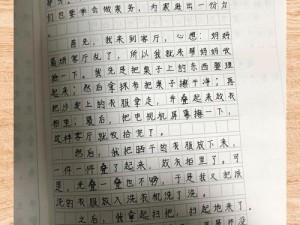 们也要学会做家务，为家庭出一份力
首先，我来到客厅，心想：妈妈
最烦客厅乱了，所以我就来帮妈妈收
拾一下，我先是把桌子上的东西整理
起来；然后拿抹布把桌子擦干净；再
把沙发上的衣服拿走，并叠起来放衣
柜里；最后，把电视机屏幕擦一下，
这样客厅就收拾完了。
然后，我把晒干的衣服放下来，
一件一件叠了起来，放衣柜里了，可
是，光叠一叠也不够，于是我又把该
洗的衣服放入洗衣机洗了洗。
之后，我拿起扫把，扫起地来了